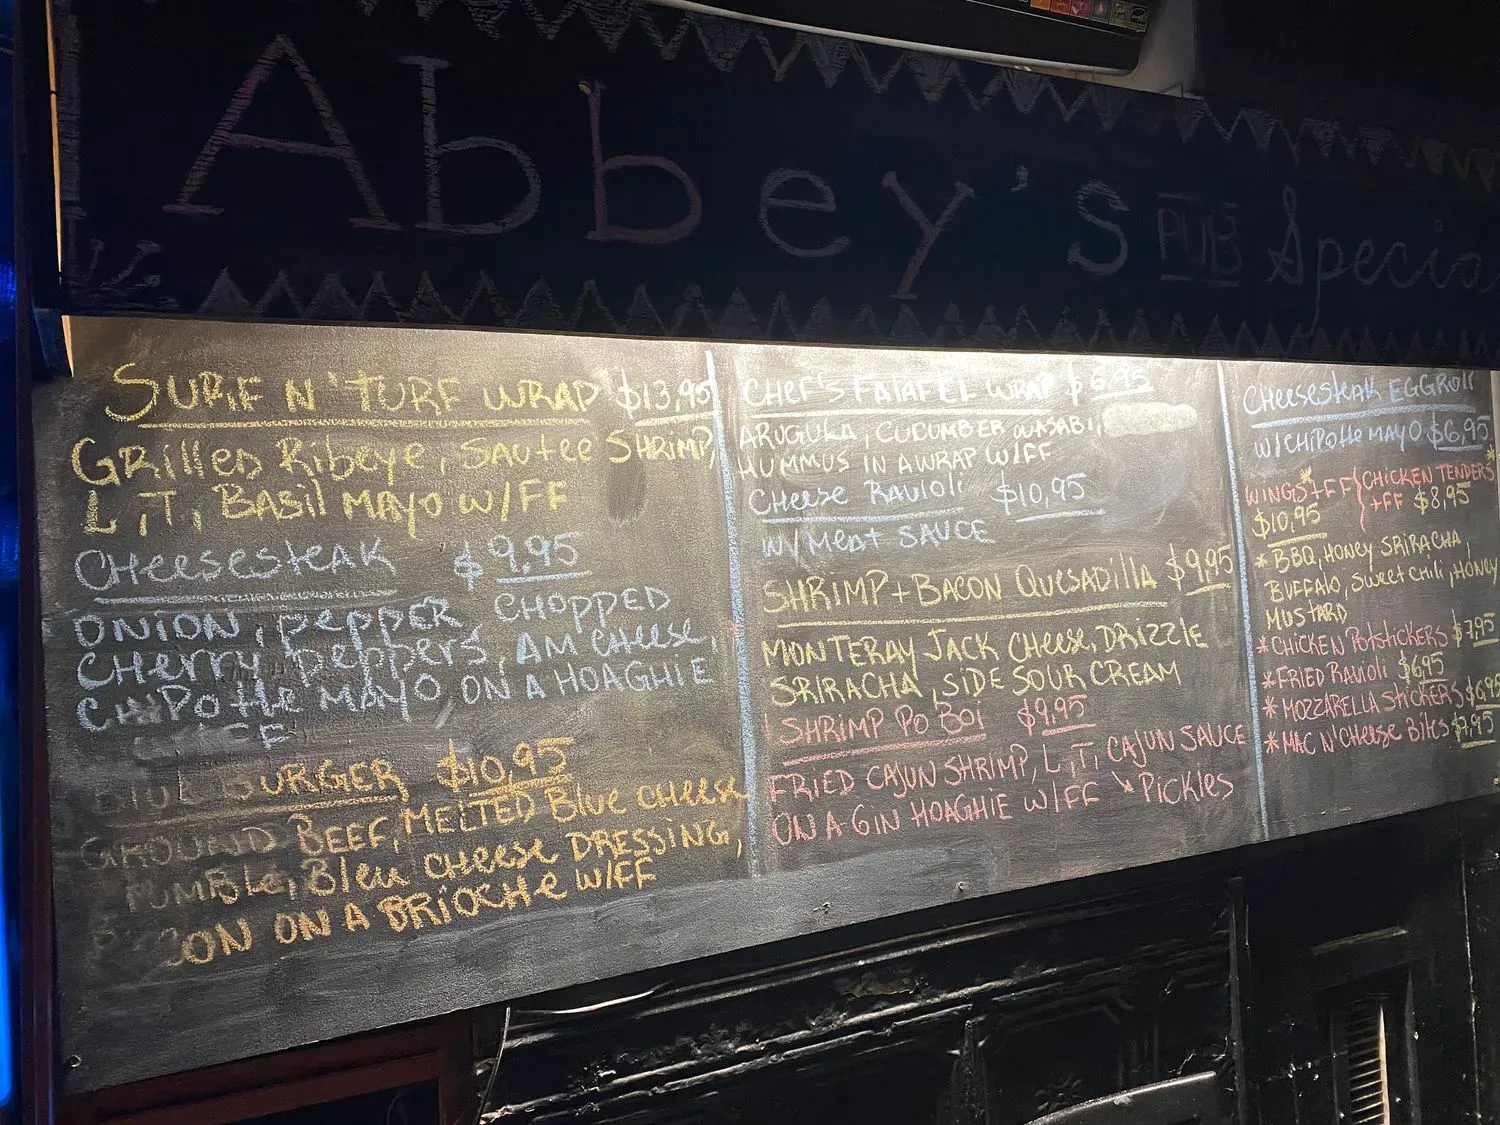 Abbey's PUB Specia
SURF N' TURF WRAP $13.95
GRilled Ribeye, SAUtee SHRIMP,
L, T, BASil MAYO W/FF
CHeesesteAK $9.95
ONION, PePPER CHOPPED
CHerry PePPerS, AM CHeeSe,
CHiPOtle MAYO, ON A HOAGHIE
FF
BURGER $10.95
GROUND BEEF, MELTED Blue CHeese
CRUMBLe, Bleu CHeese DRESSING,
BACON ON A BRIOCHe W/FF
CHEF'S FAlAFEL WRAP $6.95
ARUGULA, CUCUMBER WASABI,
HUMMUS IN A WRAP W/FF
CHeese RAViOLi $10.95
W/ MeAt SAUCE
SHRIMP + BACON QUeSADillA $9.95
MONTERAY JACK CHeese, DRIZZLE
SRIRACHA, SIDE SOUR CREAM
SHRIMP PO BOi $9.95
FRIED CAJUN SHRIMP, L, T, CAJUN SAUCE
ON A 6IN HOAGHIE W/FF ↘ PickLeS
CHeeseSteAK EGGRoll
W/CHiPOtle MAYO $6.95
WINGS* + FF { CHICKEN TENDERS*
$10.95 + FF $8.95
* BBQ, HONEY SRIRACHA,
BUFFALO, SWeet CHili, HONEY
MUSTARD
* CHICKEN POtSTICKERS $7.95
* FRIED RAViOLi $6.95
* MOZZARELLA STICKERS $6.95
* MAC N' CHeese Bites $7.95